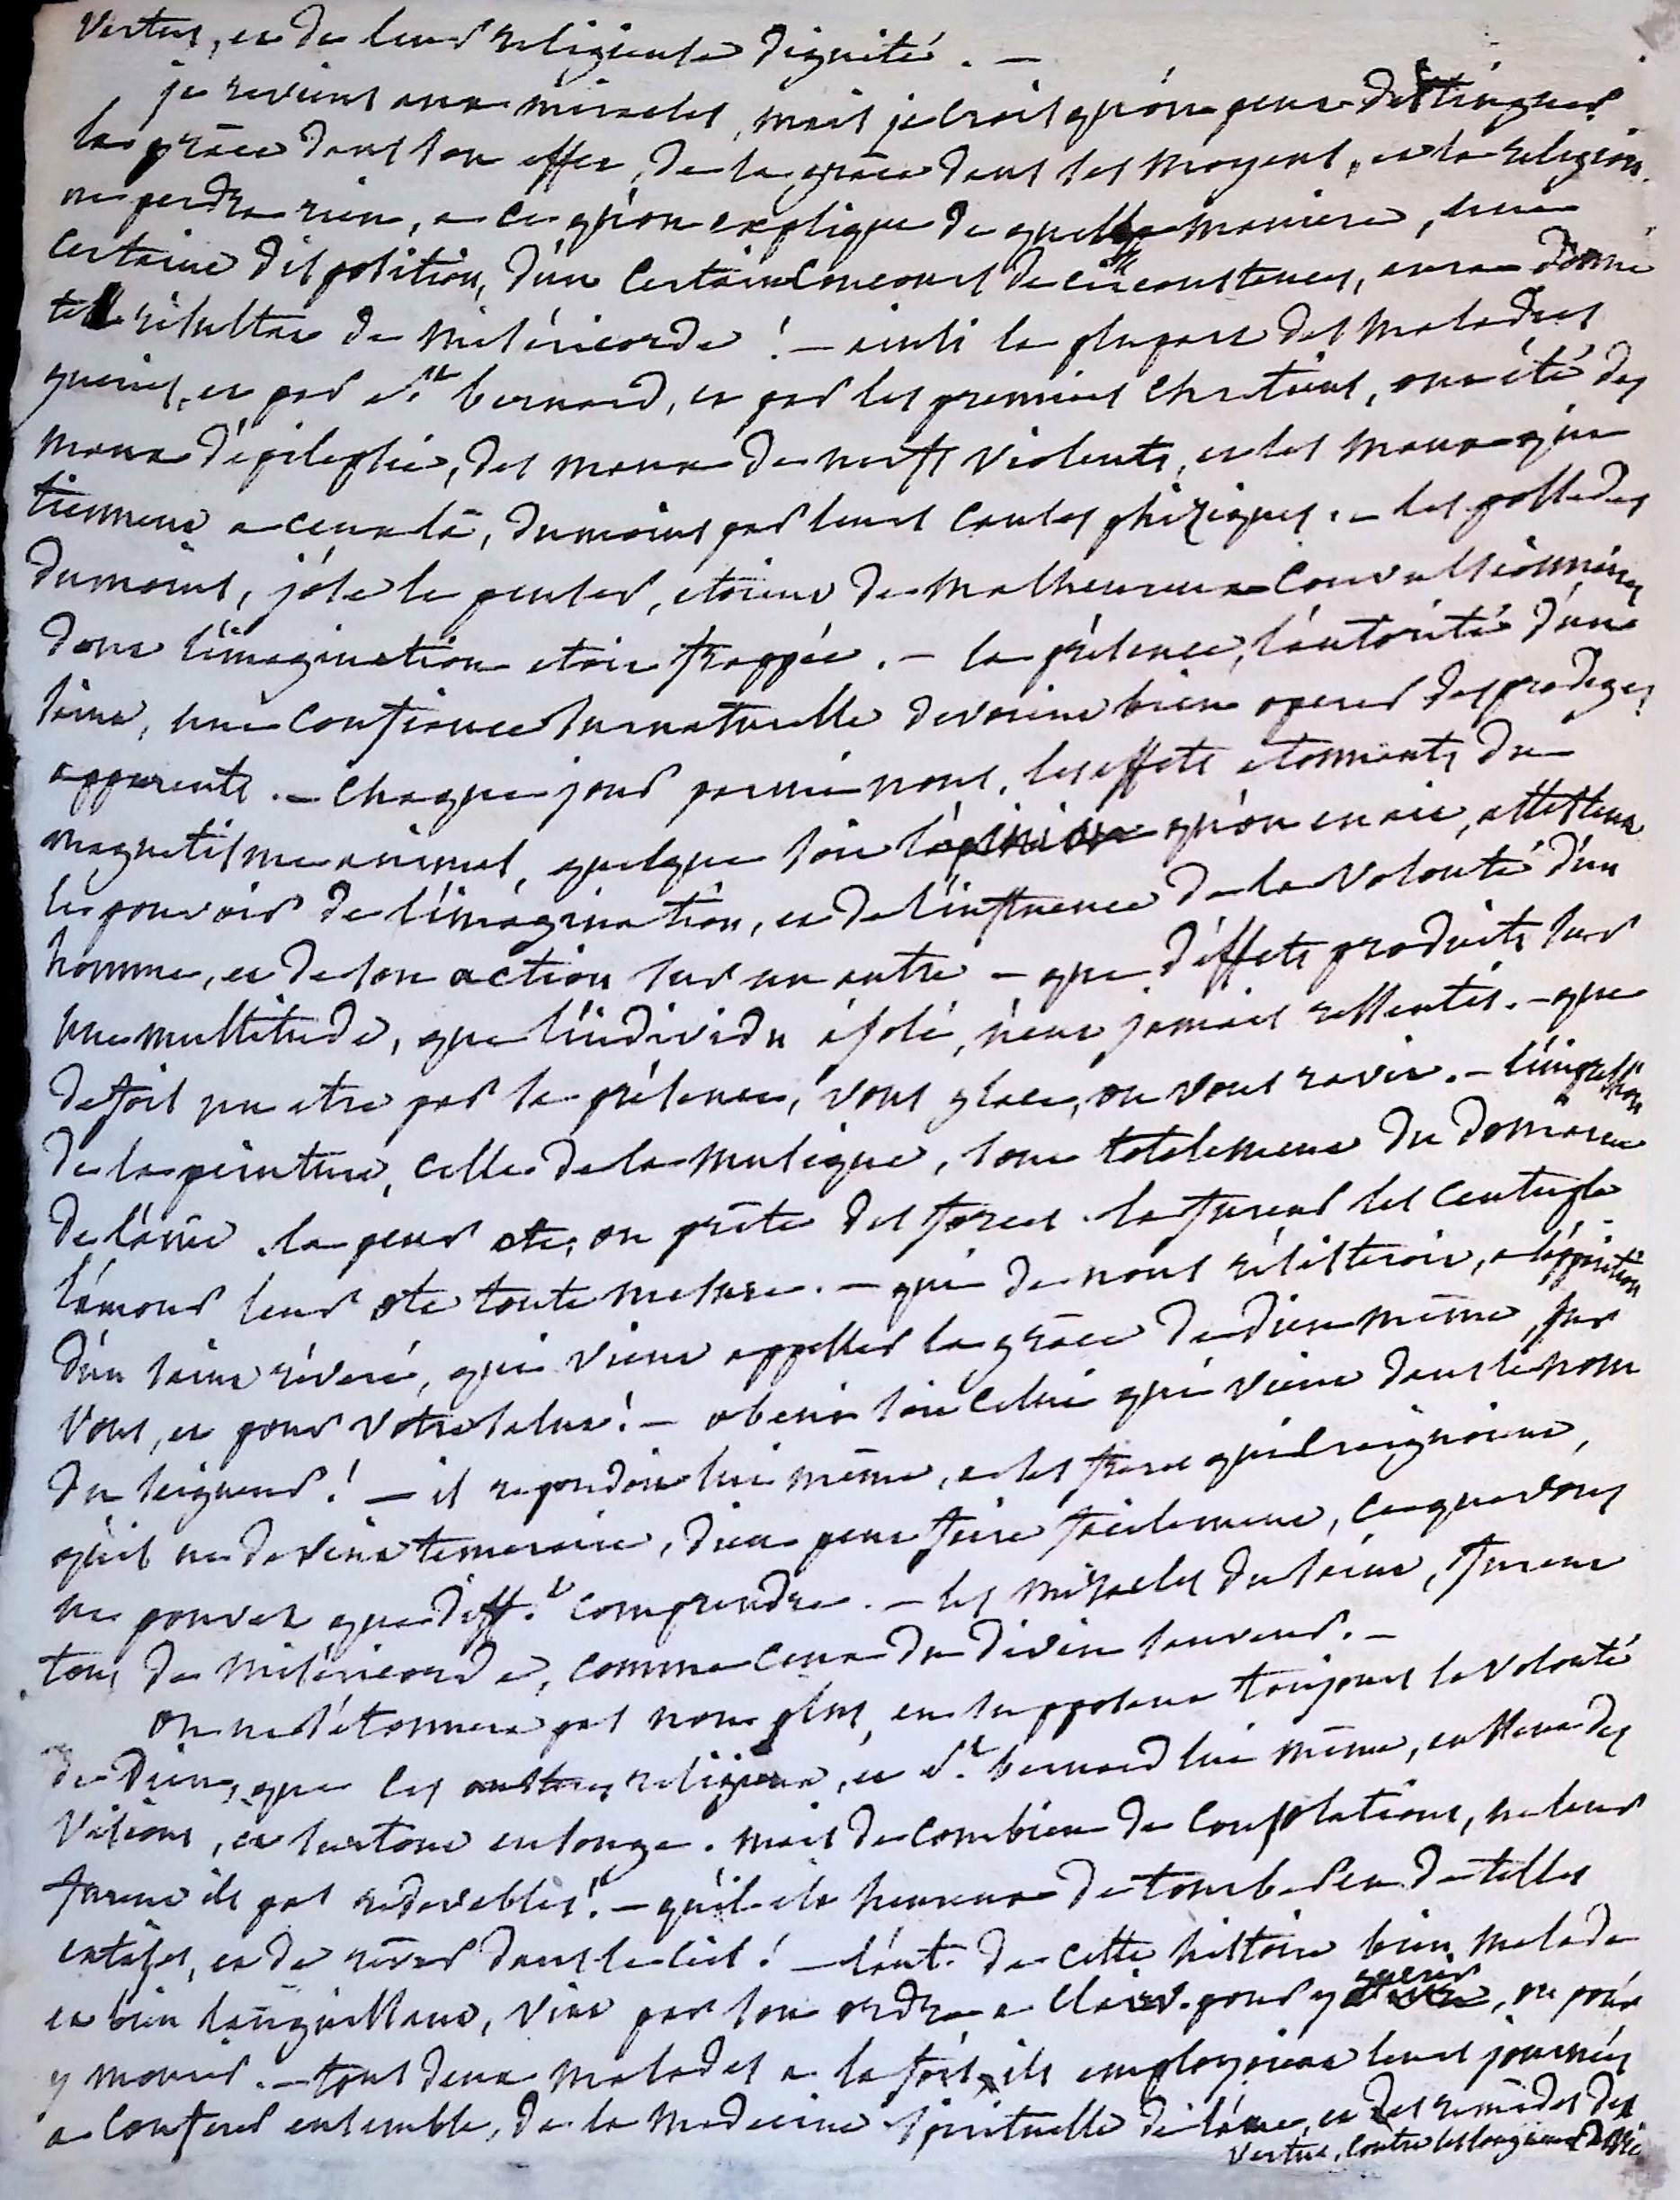 vertus, et de leur religieuse dignité. —
je reviens aux miracles, mais je crois qu'on peut distinguer
la grâce dans son effet, de la grâce dans ses moyens, et la religion
ne perdra rien, a ce qu'on explique de quelle maniere, une
certaine disposition, d'un certain concours de circonstances, aura donné
tel résultat de miséricorde! — ainsi la plupart des malades
gueris, et par st bernard, et par les premiers chretiens, ont été des
maux d'épilepsie, des maux de nerfs violents, et les maux qui
tiennent a ceux là, du moins par leurs causes phiziques. — les possedés
du moins, j'ose le penser, etoient de malheureux convulsionnaires
dont l'imagination etoit frappée. — la présence, l'autorité d'un
saint, une confiance surnaturelle devoient bien operer des prodiges
apparents. — chaque jour parmi nous, les effets etonnants du
magnetisme animal, quelque soit l'opinion qu'on en ait, attestent
le pouvoir de l'imagination, et de l'influence de la volonté d'un
homme, et de son action sur un autre — que d'effets produits sur
une multitude, que l'individu isolé, n'eut jamais ressentis. — que
de fois un etre par sa présence, vous glace, ou vous ravit. — l'impression
de la peinture, celle de la musique, sont totalement du domaine
de l'âme. la peur ote, ou prête des forces. la fureur les centuple
l'amour leur ote toute mesure. — qui de nous résisteroit, a l'apparition
d'un saint révéré, qui vient appeller la grâce de dieu même, sur
vous, et pour votre salut! — o beni soit celui qui vient dans le nom
du seigneur! — il repondoit lui même, a ses freres qui craignoient,
qu'il ne devint temeraire, dieu peut faire facilement, ce que vous
ne pouvez que diff.t comprendre. — les miracles du saint, furent
tous de miséricorde, comme ceux du divin sauveur. —
on ne s'étonnera pas non plus, en supposant toujours la volonté
de dieu, que les religieux, et st bernard lui même, eussent des
visions, et surtout en songe. mais de combien de consolations, ne leur
furent ils pas redevables! — qu'il est heureux de tomber en de telles
extases, et de rêver dans le ciel! — l'aut. de cette histoire bien malade
et bien languissant, vint par son ordre a Clairv. pour y guerir, ou pour
y mourir. — tous deux malades a la fois, ils employoient leurs journées
a conferer ensemble, de la medecine spirituelle de l'âme, et des remèdes des
vertus, contre les langueurs